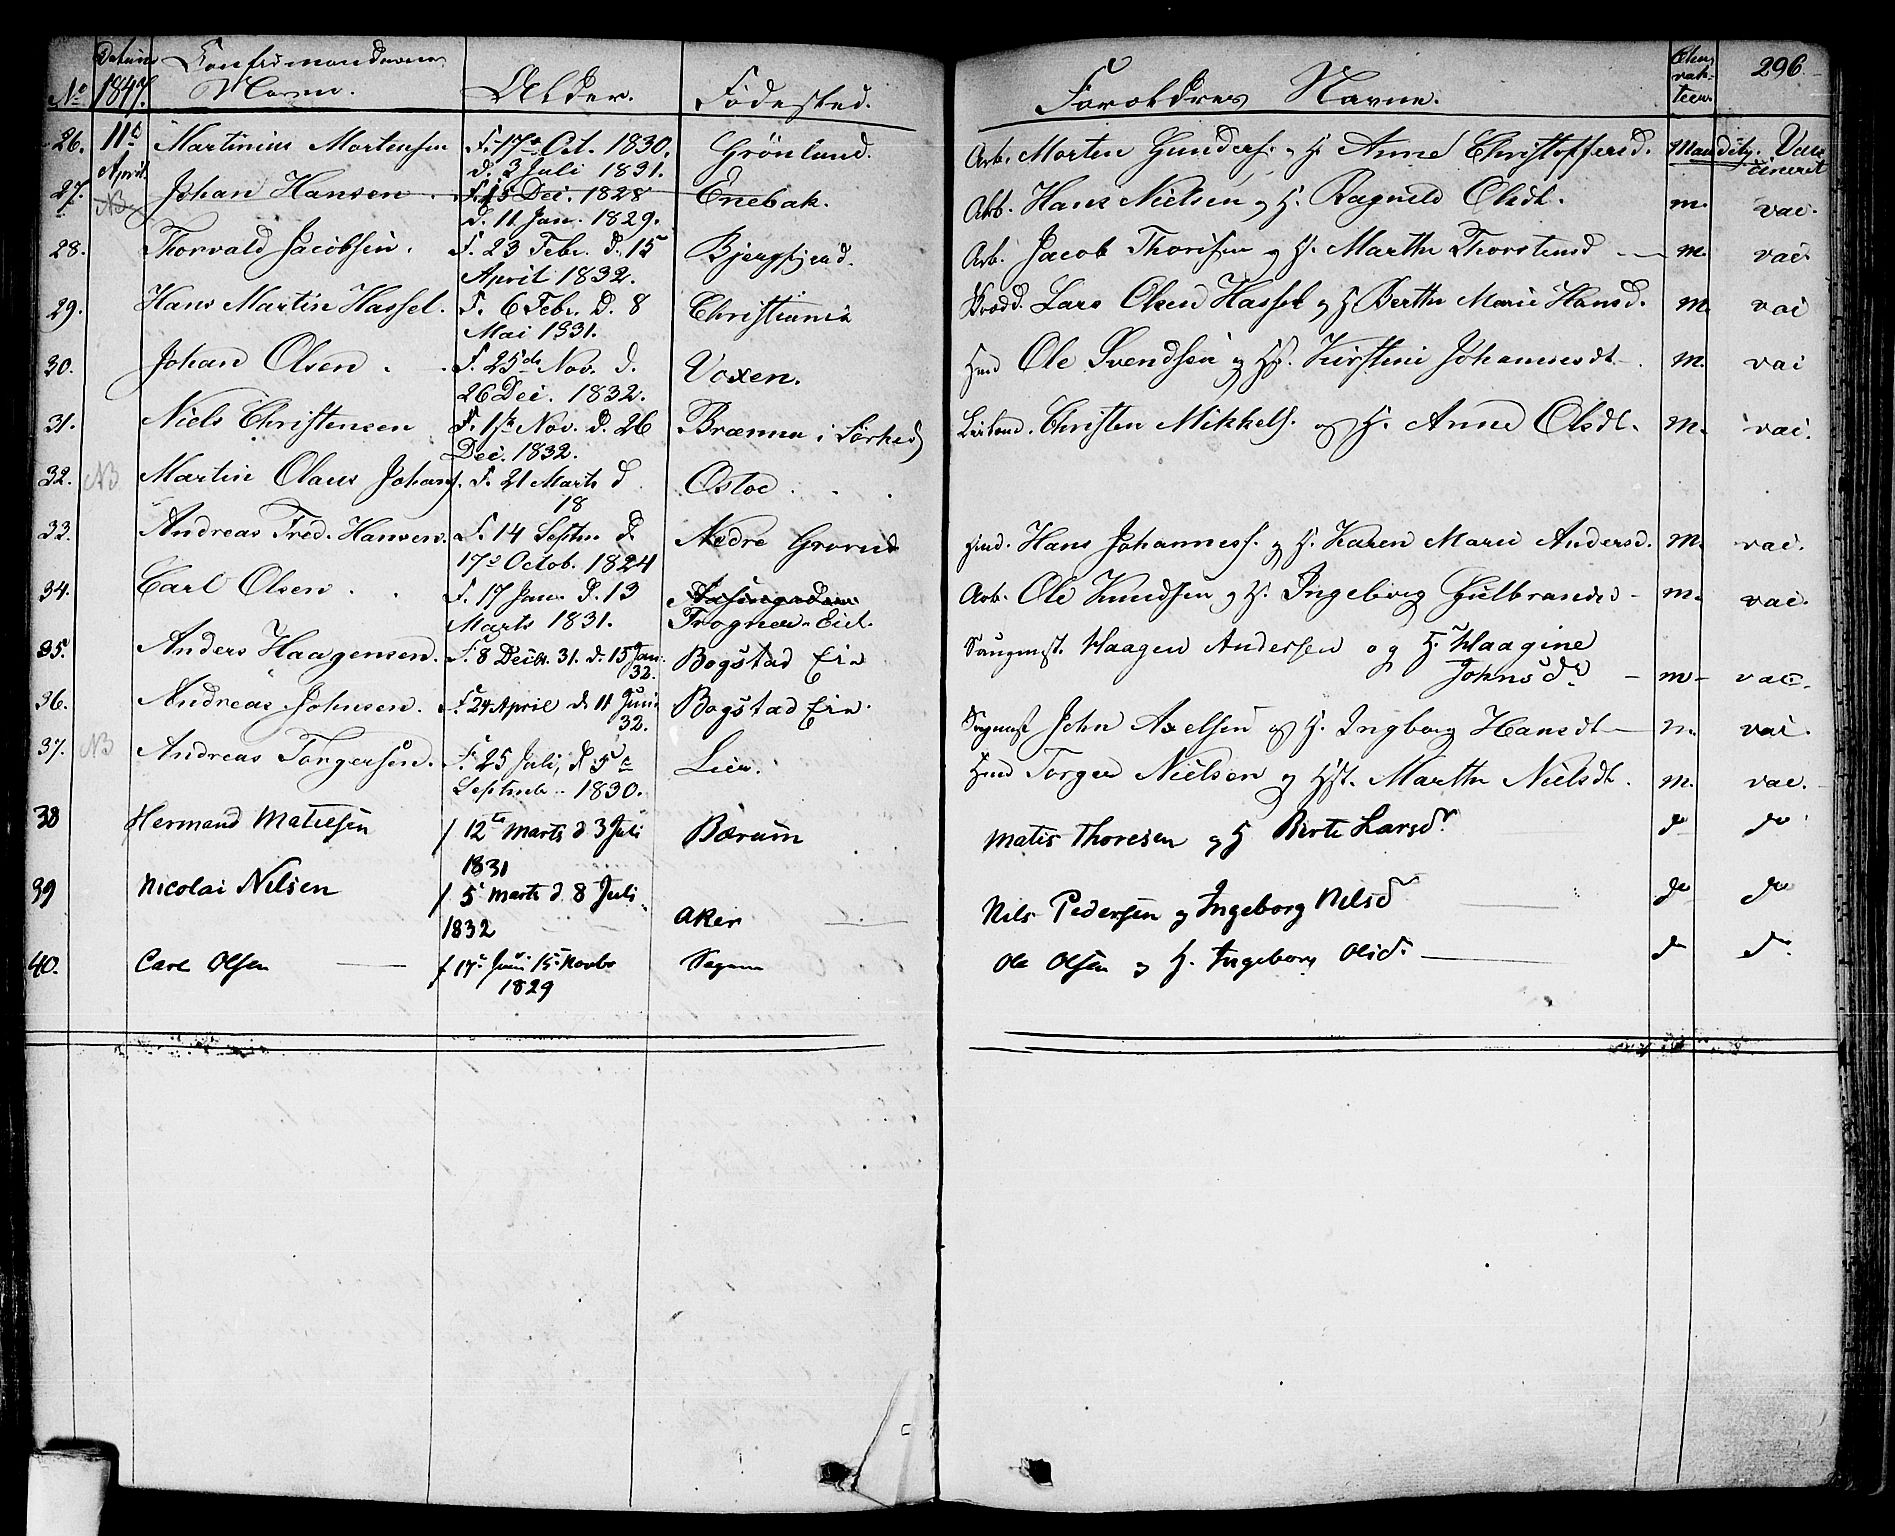 No Datum 1847. Confirmandernes Navne. Alder. Fødested. Forældres Navne. Charakteer. 296
26. 11te April Martinius Mortensen F. 17de Oct. 1830. Grönland. Arb. Morten Gunders. og H. Anne Christoffersd. Maadelig. Vac
d. 3 Juli 1831. cineret
27. NB Johan Hansen F. 15 Dec. 1828 Enebak. Arb. Hans Nielsen og H. Ragnild Olsdt. m. vac.
d. 11 Jan. 1829.
28. Thorvald Jacobsen. F. 23 Febr. d. 15 Arb. Jacob Thorsen og H. Marthe Thorstensd m. vac
April 1832.
29. Hans Martin Hassel. F. 6 Febr. d. 8 Christiania Lars Olsen Hassel og H. Berthe Marie Hansd. m. vac
Mai 1831.
30. Johan Olsen. F. 25de Nov. d. Voxen. Hmd Ole Svendsen og H. Kirstine Johannesdt m. vac
26 Dec. 1832.
31. Niels Christensen F. 1ste Nov. d. 26 Brænna i Sörked Christen Mikkels. og H. Anne Olsdt. m. vac.
Dec. 1832.
32. NB Martin Olaus Johans. F. 21 Marts d Osloe
18
33. Andreas Fred. Hansen. F. 14 Septbr d. Nedre Grorud Hmd. Hans Johanness. og H. Karen Marie Andersd. m. vac.
17de Octob. 1824
34. Carl Olsen F. 17 Jan. d. 13 Arb. Ole Knudsen og H. Ingeborg Gulbrandsd m. vac.
Marts 1831. Frogner-Eiet.
35. Anders Haagensen. F. 8 Decbr. 31. d. 15 Jan. 32. Bogstad Eie Saugmst. Haagen Andersen og H. Haagine
Johnsdr m vac.
36. Andreas Johnsen. F. 24 April d 11 Juni 32. Bogstad Eie. John Axelsen og H. Ingborg Hansdt m. vac.
37. NB Andreas Torgersen. F. 25 Juli, d 5te Lier. Hmd Torger Nielsen og Hst. Marthe Nielsdt. m. vac.
Septmbr 1830.
38 Hermand Matiesen f 12te Marts d 3 Juli Bærum Matis Thoresen og H Berte Larsdr do do
1831
39 Nicolai Nilsen f 5 Marts d. 8 Juli Aker Nils Pedersen og Ingeborg Nilsd do do
1832
40. Carl Olsen f 17de Juni 15 Novbr Ole Olsen og H. Ingeborg Olsd. do do
1829